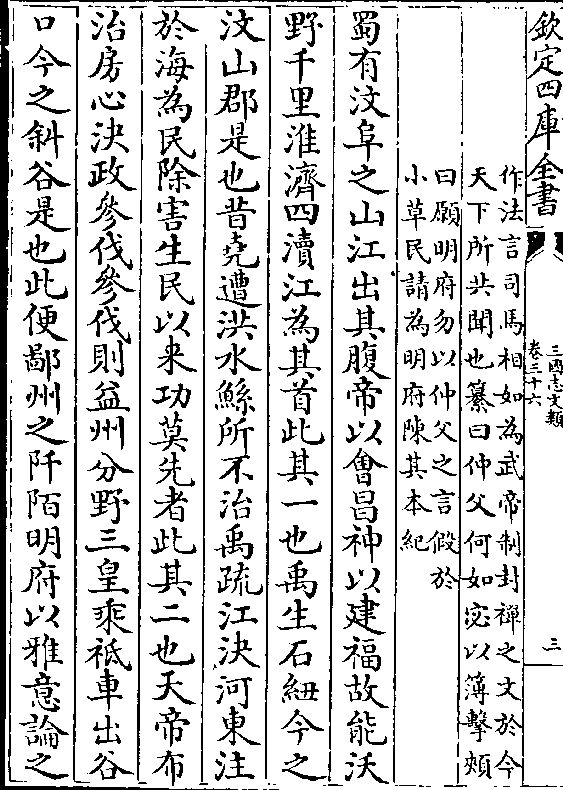 欽定四庫全書
三國志文類
卷三十六
三
作法言司馬相如為武帝制封禪之文於今
天下所共聞也纂曰仲父何如宓以簿擊頰
曰願明府勿以仲父之言假於
小草民請為明府陳其本紀
蜀有汶阜之山江出其腹帝以會昌神以建福故能沃
野千里淮濟四瀆江為其首此其一也禹生石紐今之
汶山郡是也昔堯遭洪水鯀所不治禹疏江決河東注
於海為民除害生民以来功莫先者此其二也天帝布
治房心決政參伐參伐則益州分野三皇乘祗車出谷
口今之斜谷是也此便鄙州之阡陌明府以雅意論之